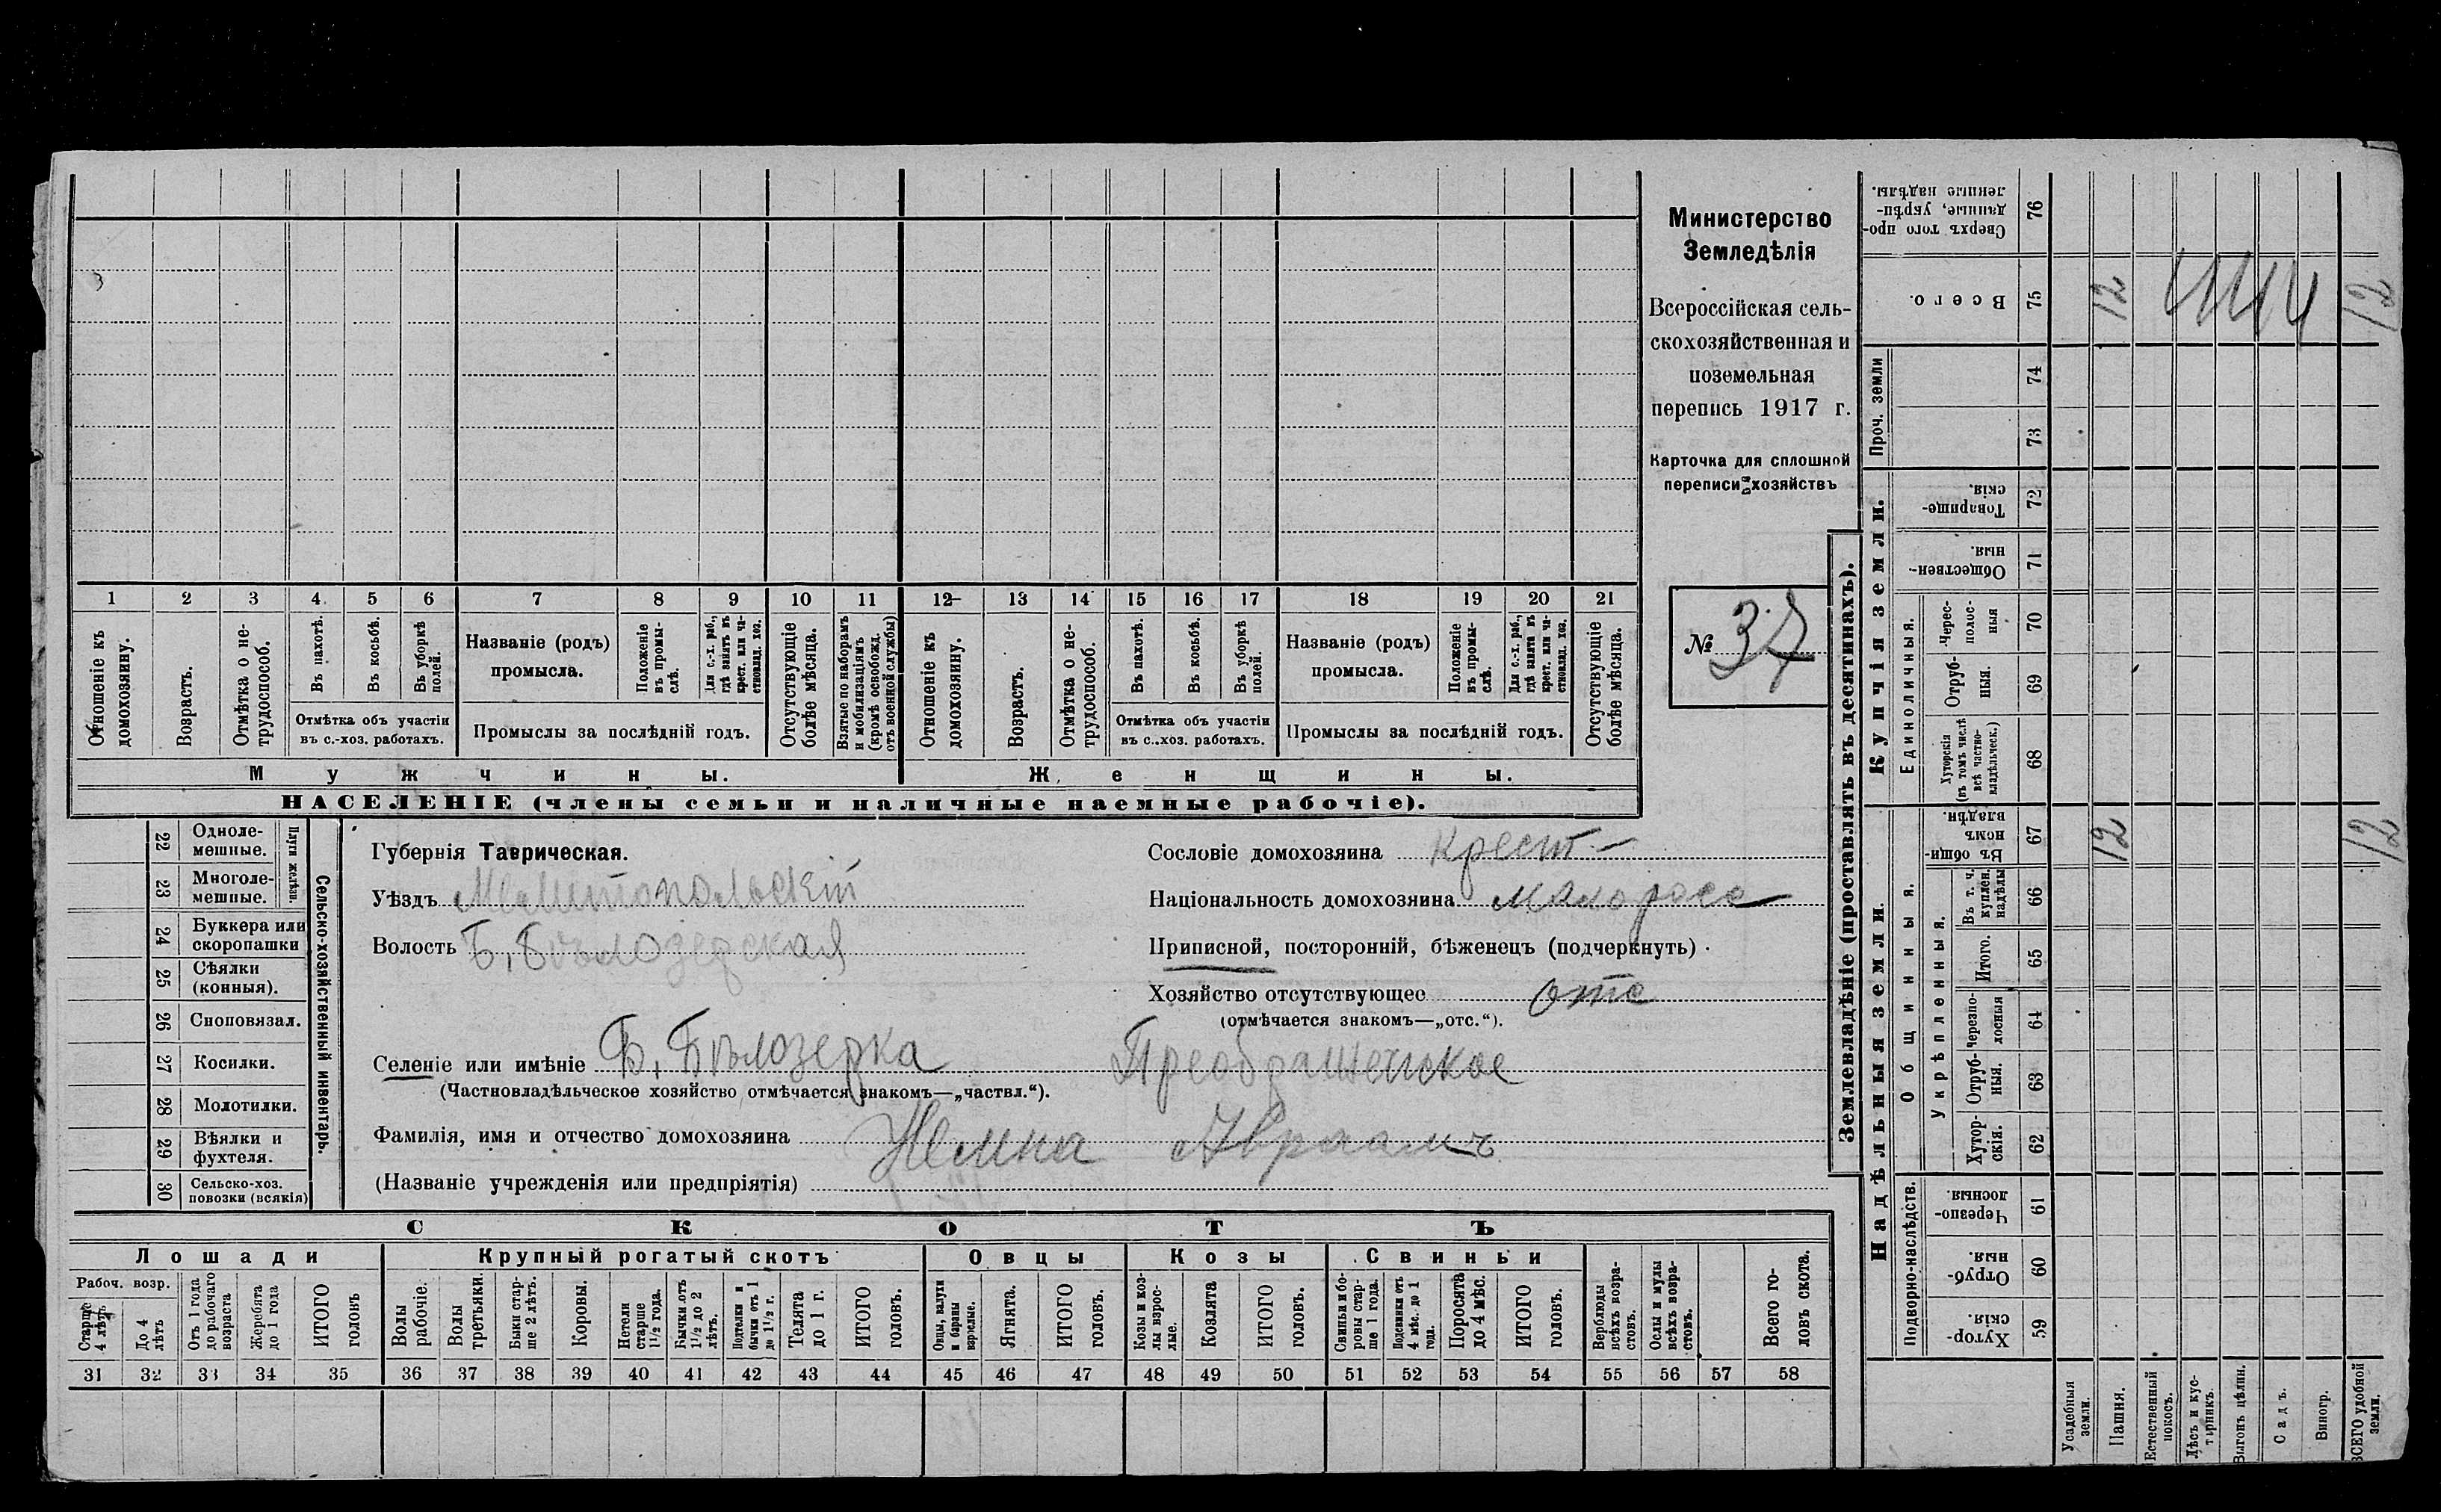 1 2 3 4 5 6 7 8 9 10 11 12 13 14 15 16 17 18 19 20 21
Отношеніе къ домохозяину.
Возрастъ.
Отмѣтка о нетрудоспособ.
Въ пахотѣ.
Въ косьбѣ.
Въ уборкѣ полей.
Отмѣтка объ участіи
въ с.-хоз. работахъ.
Названіе (родъ)
промысла.
Положеніе въ промыслѣ.
Для с.-х. раб., гдѣ занятъ въ крест. или частновлад. хоз.
Промыслы за послѣдній годъ.
Отсутствующіе болѣе мѣсяца.
Взятые по наборамъ и мобилизаціямъ (кромѣ освобожд. отъ военной службы)
Отношеніе къ домохозяину.
Возрастъ.
Отмѣтка о нетрудоспособ.
Въ пахотѣ.
Въ косьбѣ.
Въ уборкѣ полей.
Отмѣтка объ участіи
въ с.-хоз. работахъ.
Названіе (родъ)
промысла.
Положеніе въ промыслѣ.
Для с.-х. раб., гдѣ занятъ въ крест. или частновлад. хоз.
Промыслы за послѣдній годъ.
Отсутствующіе болѣе мѣсяца.
Мужчины. Женщины.
НАСЕЛЕНІЕ (члены семьи и наличные наемные рабочіе).
Министерство
Земледѣлія
Всероссійская сель-
скохозяйственная и
поземельная
перепись 1917 г.
Карточка для сплошной
переписи хозяйствъ
№ 37
22 Однолемешные.
23 Многолемешные.
Плуги желѣзн.
24 Буккера или скоропашки
25 Сѣялки (конныя).
26 Сноповязал.
27 Косилки.
28 Молотилки.
29 Вѣялки и фухтеля.
30 Сельско-хоз. повозки (всякія)
Сельско-хозяйственный инвентарь.
Губернія Таврическая.
Уѣздъ Мелитопольскій
Волость Б. Бѣлозерская
Селеніе или имѣніе Б. Бѣлозерка Преображенское
(Частновладѣльческое хозяйство отмѣчается знакомъ—„частвл.“).
Фамилія, имя и отчество домохозяина Жемна Авраамъ
(Названіе учрежденія или предпріятія)
Сословіе домохозяина крест
Національность домохозяина малоросс
Приписной, посторонній, бѣженецъ (подчеркнуть)
Хозяйство отсутствующее отс
(отмѣчается знакомъ—„отс.“).
СКОТЪ
Лошади Крупный рогатый скотъ Овцы Козы Свиньи
Рабоч. возр.
Старше 4 лѣтъ
До 4 лѣтъ
Отъ 1 года до рабочаго возраста
Жеребята до 1 года
ИТОГО головъ
Волы рабочіе.
Волы третьяки.
Быки старше 2 лѣтъ.
Коровы.
Нетели старше 1½ года.
Бычки отъ 1½ до 2 лѣтъ.
Подтелки и бычки отъ 1 до 1½ г.
Телята до 1 г.
ИТОГО головъ.
Овцы, валухи и бараны взрослые.
Ягнята.
ИТОГО головъ.
Козы и козлы взрослые.
Козлята
ИТОГО головъ.
Свиньи и боровы старше 1 года.
Подсвинки отъ 4 мѣс. до 1 года.
Поросята до 4 мѣс.
ИТОГО головъ.
Верблюды всѣхъ возрастовъ.
Ослы и мулы всѣхъ возрастовъ.
Всего головъ скота.
31 32 33 34 35 36 37 38 39 40 41 42 43 44 45 46 47 48 49 50 51 52 53 54 55 56 57 58
Землевладѣніе (проставлять въ десятинахъ).
Надѣльныя земли.
Купчія земли.
Проч. земли
Подворно-наслѣдств.
Общинныя.
Укрѣпленныя.
Единоличныя.
Хуторскія. 59
Отрубныя. 60
Черезполосныя. 61
Хуторскія. 62
Отрубныя. 63
Черезполосныя 64
Итого. 65
Въ т. ч. куплен. надѣлы 66
Въ общинномъ владѣн. 67
Хуторскія (въ томъ числѣ всѣ частновладѣльческ.) 68
Отрубныя. 69
Чересполосныя 70
Общественныя. 71
Товарищескія. 72
73
74
Всего. 75
Сверхъ того проданные, укрѣпленные надѣлы. 76
Усадебныя земли.
Пашня. 12 12
Естественный покосъ.
Лѣсъ и кустарникъ.
Выгонъ цѣлин.
Садъ.
Виногр.
ВСЕГО удобной земли. 12 12